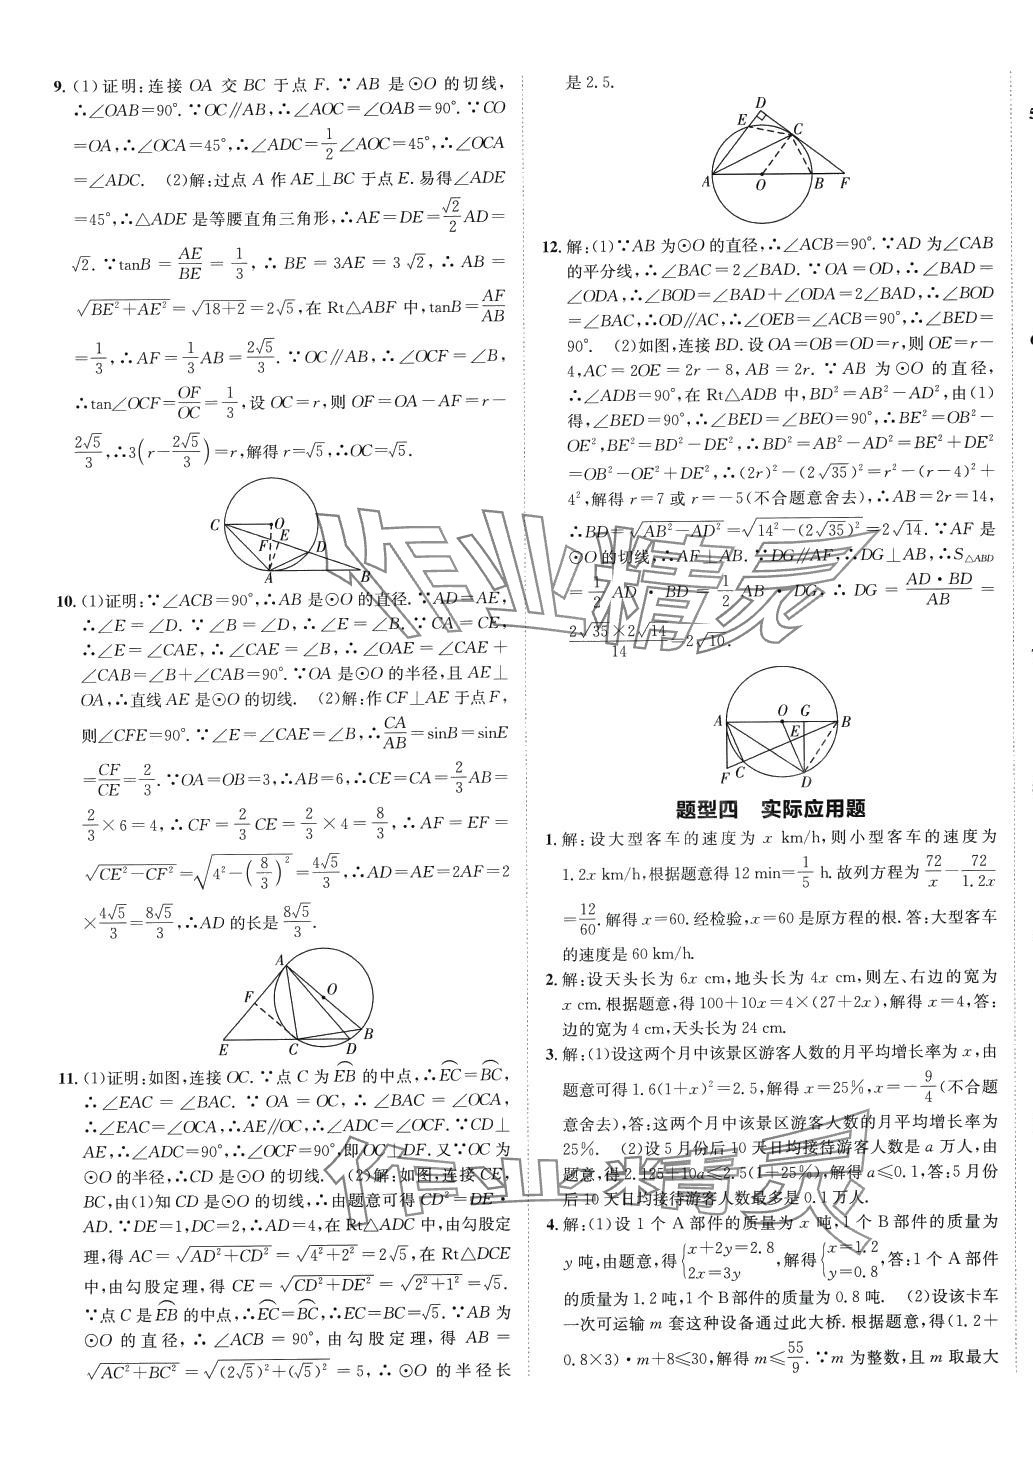 9. (1)证明:连接 OA 交 BC 于点 F. ∵ AB 是 ⊙O 的切线,
∴∠OAB=90°. ∵OC∥AB,∴∠AOC=∠OAB=90°. ∵CO
=OA,∴∠OCA=45°,∴∠ADC=1/2∠AOC=45°,∴∠OCA
=∠ADC. (2)解:过点 A 作 AE⊥BC 于点 E. 易得∠ADE
=45°,∴△ADE 是等腰直角三角形,∴AE=DE=√2/2 AD=
√2. ∵tanB=AE/BE=1/3,∴BE=3AE=3√2,∴AB=
√(BE²+AE²)=√(18+2)=2√5,在 Rt△ABF 中,tanB=AF/AB
=1/3,∴AF=1/3 AB=2√5/3. ∵OC∥AB,∴∠OCF=∠B,
∴tan∠OCF=OF/OC=1/3,设 OC=r,则 OF=OA-AF=r-
2√5/3,∴3(r-2√5/3)=r,解得 r=√5,∴OC=√5.
C O E F D A B
10. (1)证明:∵∠ACB=90°,∴AB 是⊙O 的直径. ∵AD=AE,
∴∠E=∠D. ∵∠B=∠D,∴∠E=∠B. ∵CA=CE,
∴∠E=∠CAE,∴∠CAE=∠B,∴∠OAE=∠CAE+
∠CAB=∠B+∠CAB=90°. ∵OA 是⊙O 的半径,且 AE⊥
OA,∴直线 AE 是⊙O 的切线. (2)解:作 CF⊥AE 于点 F,
则∠CFE=90°. ∵∠E=∠CAE=∠B,∴CA/AB=sinB=sinE
=CF/CE=2/3. ∵OA=OB=3,∴AB=6,∴CE=CA=2/3 AB=
2/3×6=4,∴CF=2/3 CE=2/3×4=8/3,∴AF=EF=
√(CE²-CF²)=√(4²-(8/3)²)=4√5/3,∴AD=AE=2AF=2
×4√5/3=8√5/3,∴AD 的长是8√5/3.
A F O B E C D
11. (1)证明:如图,连接 OC. ∵点 C 为 EB⌒ 的中点,∴EC⌒=BC⌒,
∴∠EAC=∠BAC. ∵OA=OC,∴∠BAC=∠OCA,
∴∠EAC=∠OCA,∴AE∥OC,∴∠ADC=∠OCF. ∵CD⊥
AE,∴∠ADC=90°,∴∠OCF=90°,即OC⊥DF. 又∵OC 为
⊙O 的半径,∴CD 是⊙O 的切线. (2)解:如图,连接 CE,
BC,由(1)知 CD 是⊙O 的切线,∴由题意可得 CD²=DE·
AD. ∵DE=1,DC=2,∴AD=4,在 Rt△ADC 中,由勾股定
理,得 AC=√(AD²+CD²)=√(4²+2²)=2√5,在 Rt△DCE
中,由勾股定理,得 CE=√(CD²+DE²)=√(2²+1²)=√5.
∵点 C 是 EB⌒ 的中点,∴EC⌒=BC⌒,∴EC=BC=√5. ∵AB 为
⊙O 的直径,∴∠ACB=90°,由勾股定理,得 AB=
√(AC²+BC²)=√((2√5)²+(√5)²)=5,∴⊙O 的半径长
是 2.5.
D E C A O B F
12. 解:(1)∵AB 为⊙O 的直径,∴∠ACB=90°. ∵AD 为∠CAB
的平分线,∴∠BAC=2∠BAD. ∵OA=OD,∴∠BAD=
∠ODA,∴∠BOD=∠BAD+∠ODA=2∠BAD,∴∠BOD
=∠BAC,∴OD∥AC,∴∠OEB=∠ACB=90°,∴∠BED=
90°. (2)如图,连接 BD. 设 OA=OB=OD=r,则 OE=r-
4,AC=2OE=2r-8,AB=2r. ∵AB 为⊙O 的直径,
∴∠ADB=90°,在 Rt△ADB 中,BD²=AB²-AD²,由(1)
得,∠BED=90°,∴∠BED=∠BEO=90°,∴BE²=OB²-
OE²,BE²=BD²-DE²,∴BD²=AB²-AD²=BE²+DE²
=OB²-OE²+DE²,∴(2r)²-(2√35)²=r²-(r-4)²+
4²,解得 r=7 或 r=-5(不合题意舍去),∴AB=2r=14,
∴BD=√(AB²-AD²)=√(14²-(2√35)²)=2√14. ∵AF 是
⊙O 的切线,∴AF⊥AB. ∵DG∥AF,∴DG⊥AB,∴S△ABD
=1/2 AD·BD=1/2 AB·DG,∴DG=AD·BD/AB=
2√35×2√14/14=2√10.
A O G B E F C D
题型四 实际应用题
1. 解:设大型客车的速度为 x km/h,则小型客车的速度为
1.2x km/h,根据题意得 12 min=1/5 h. 故列方程为72/x-72/1.2x
=12/60. 解得 x=60. 经检验,x=60 是原方程的根. 答:大型客车
的速度是 60 km/h.
2. 解:设天头长为 6x cm,地头长为 4x cm,则左、右边的宽为
x cm. 根据题意,得 100+10x=4×(27+2x),解得 x=4,答:
边的宽为 4 cm,天头长为 24 cm.
3. 解:(1)设这两个月中该景区游客人数的月平均增长率为 x,由
题意可得 1.6(1+x)²=2.5,解得 x=25%,x=-9/4(不合题
意舍去),答:这两个月中该景区游客人数的月平均增长率为
25%. (2)设 5 月份后 10 天日均接待游客人数是 a 万人,由
题意,得 2.125+10a≤2.5(1+25%),解得 a≤0.1,答:5 月份
后 10 天日均接待游客人数最多是 0.1 万人.
4. 解:(1)设 1 个 A 部件的质量为 x 吨,1 个 B 部件的质量为
y 吨,由题意,得{x+2y=2.8 2x=3y,解得{x=1.2 y=0.8,答:1 个 A 部件
的质量为 1.2 吨,1 个 B 部件的质量为 0.8 吨. (2)设该卡车
一次可运输 m 套这种设备通过此大桥. 根据题意,得(1.2+
0.8×3)·m+8≤30,解得 m≤55/9. ∵m 为整数,且 m 取最大
作业精灵
作业精灵